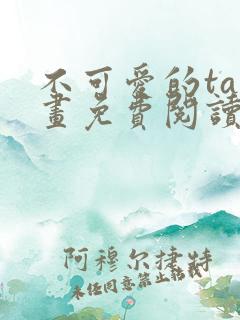 不可愛的ta
畫免費閱讀
阿穆尔捷特
未经同意禁止転載